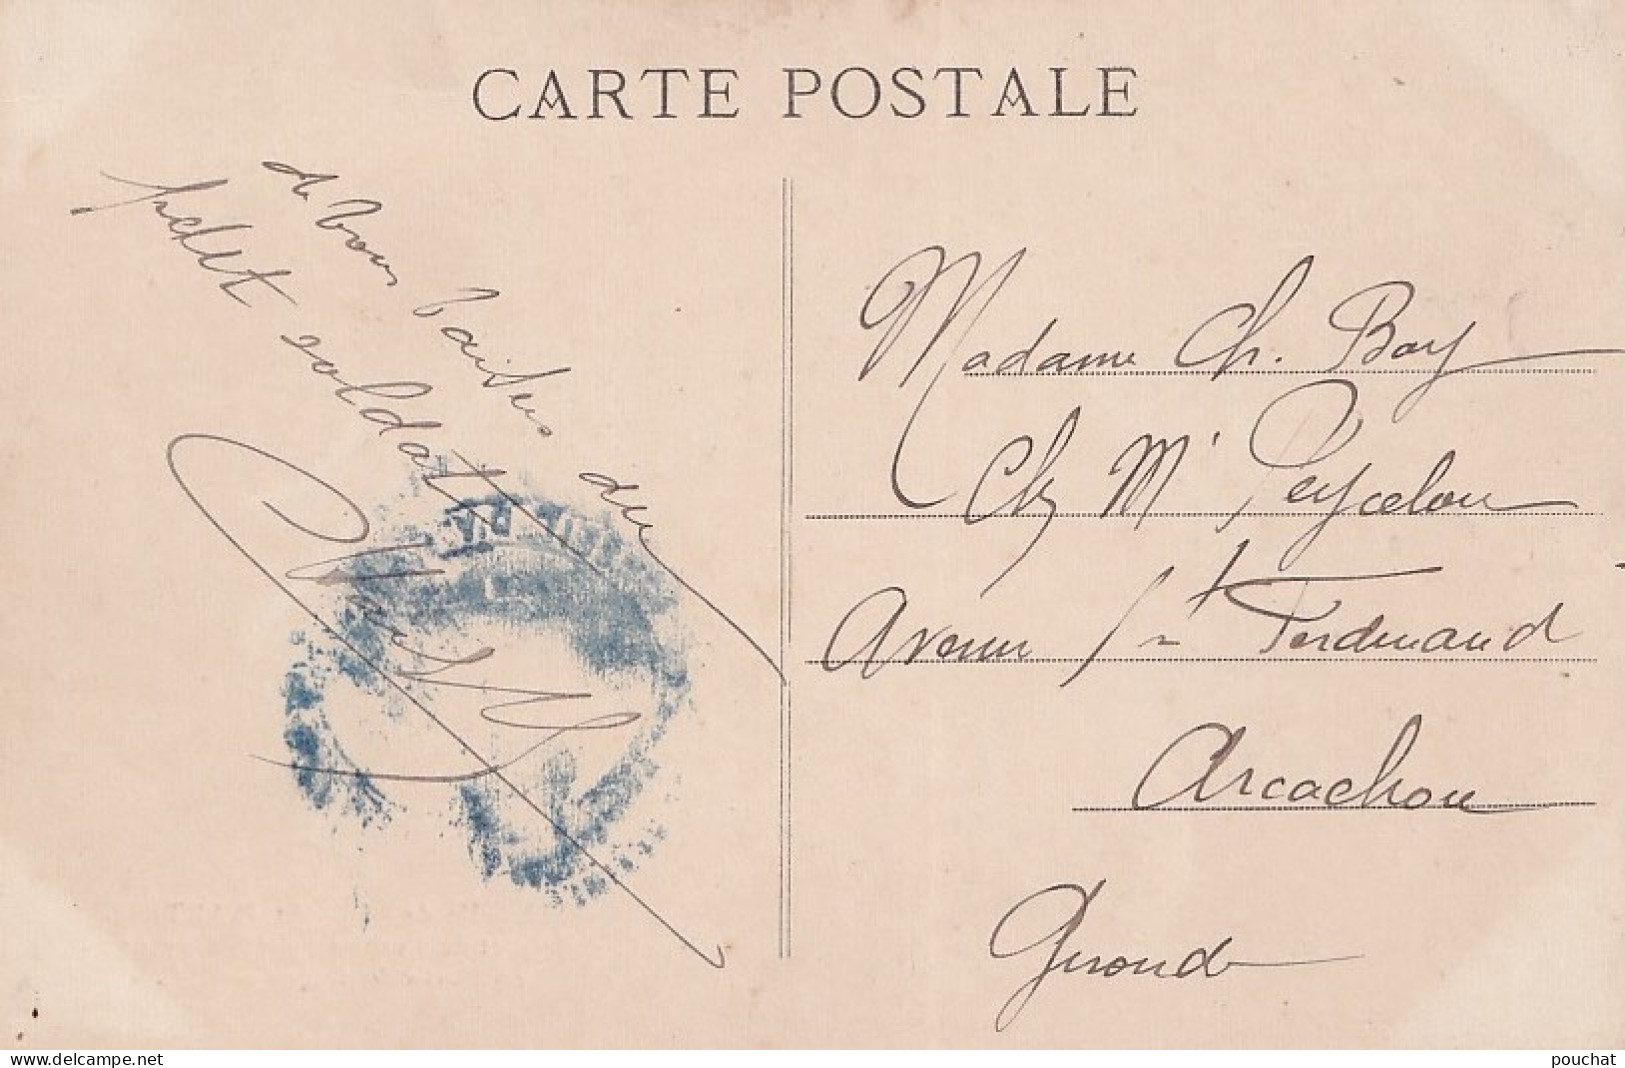 CARTE POSTALE
de bons baisers du
petit soldat
Madame Ch. Boy
Chz Mr Peycelon
Avenue St Ferdinand
Arcachon
Gironde
www.delcampe.net
pouchat